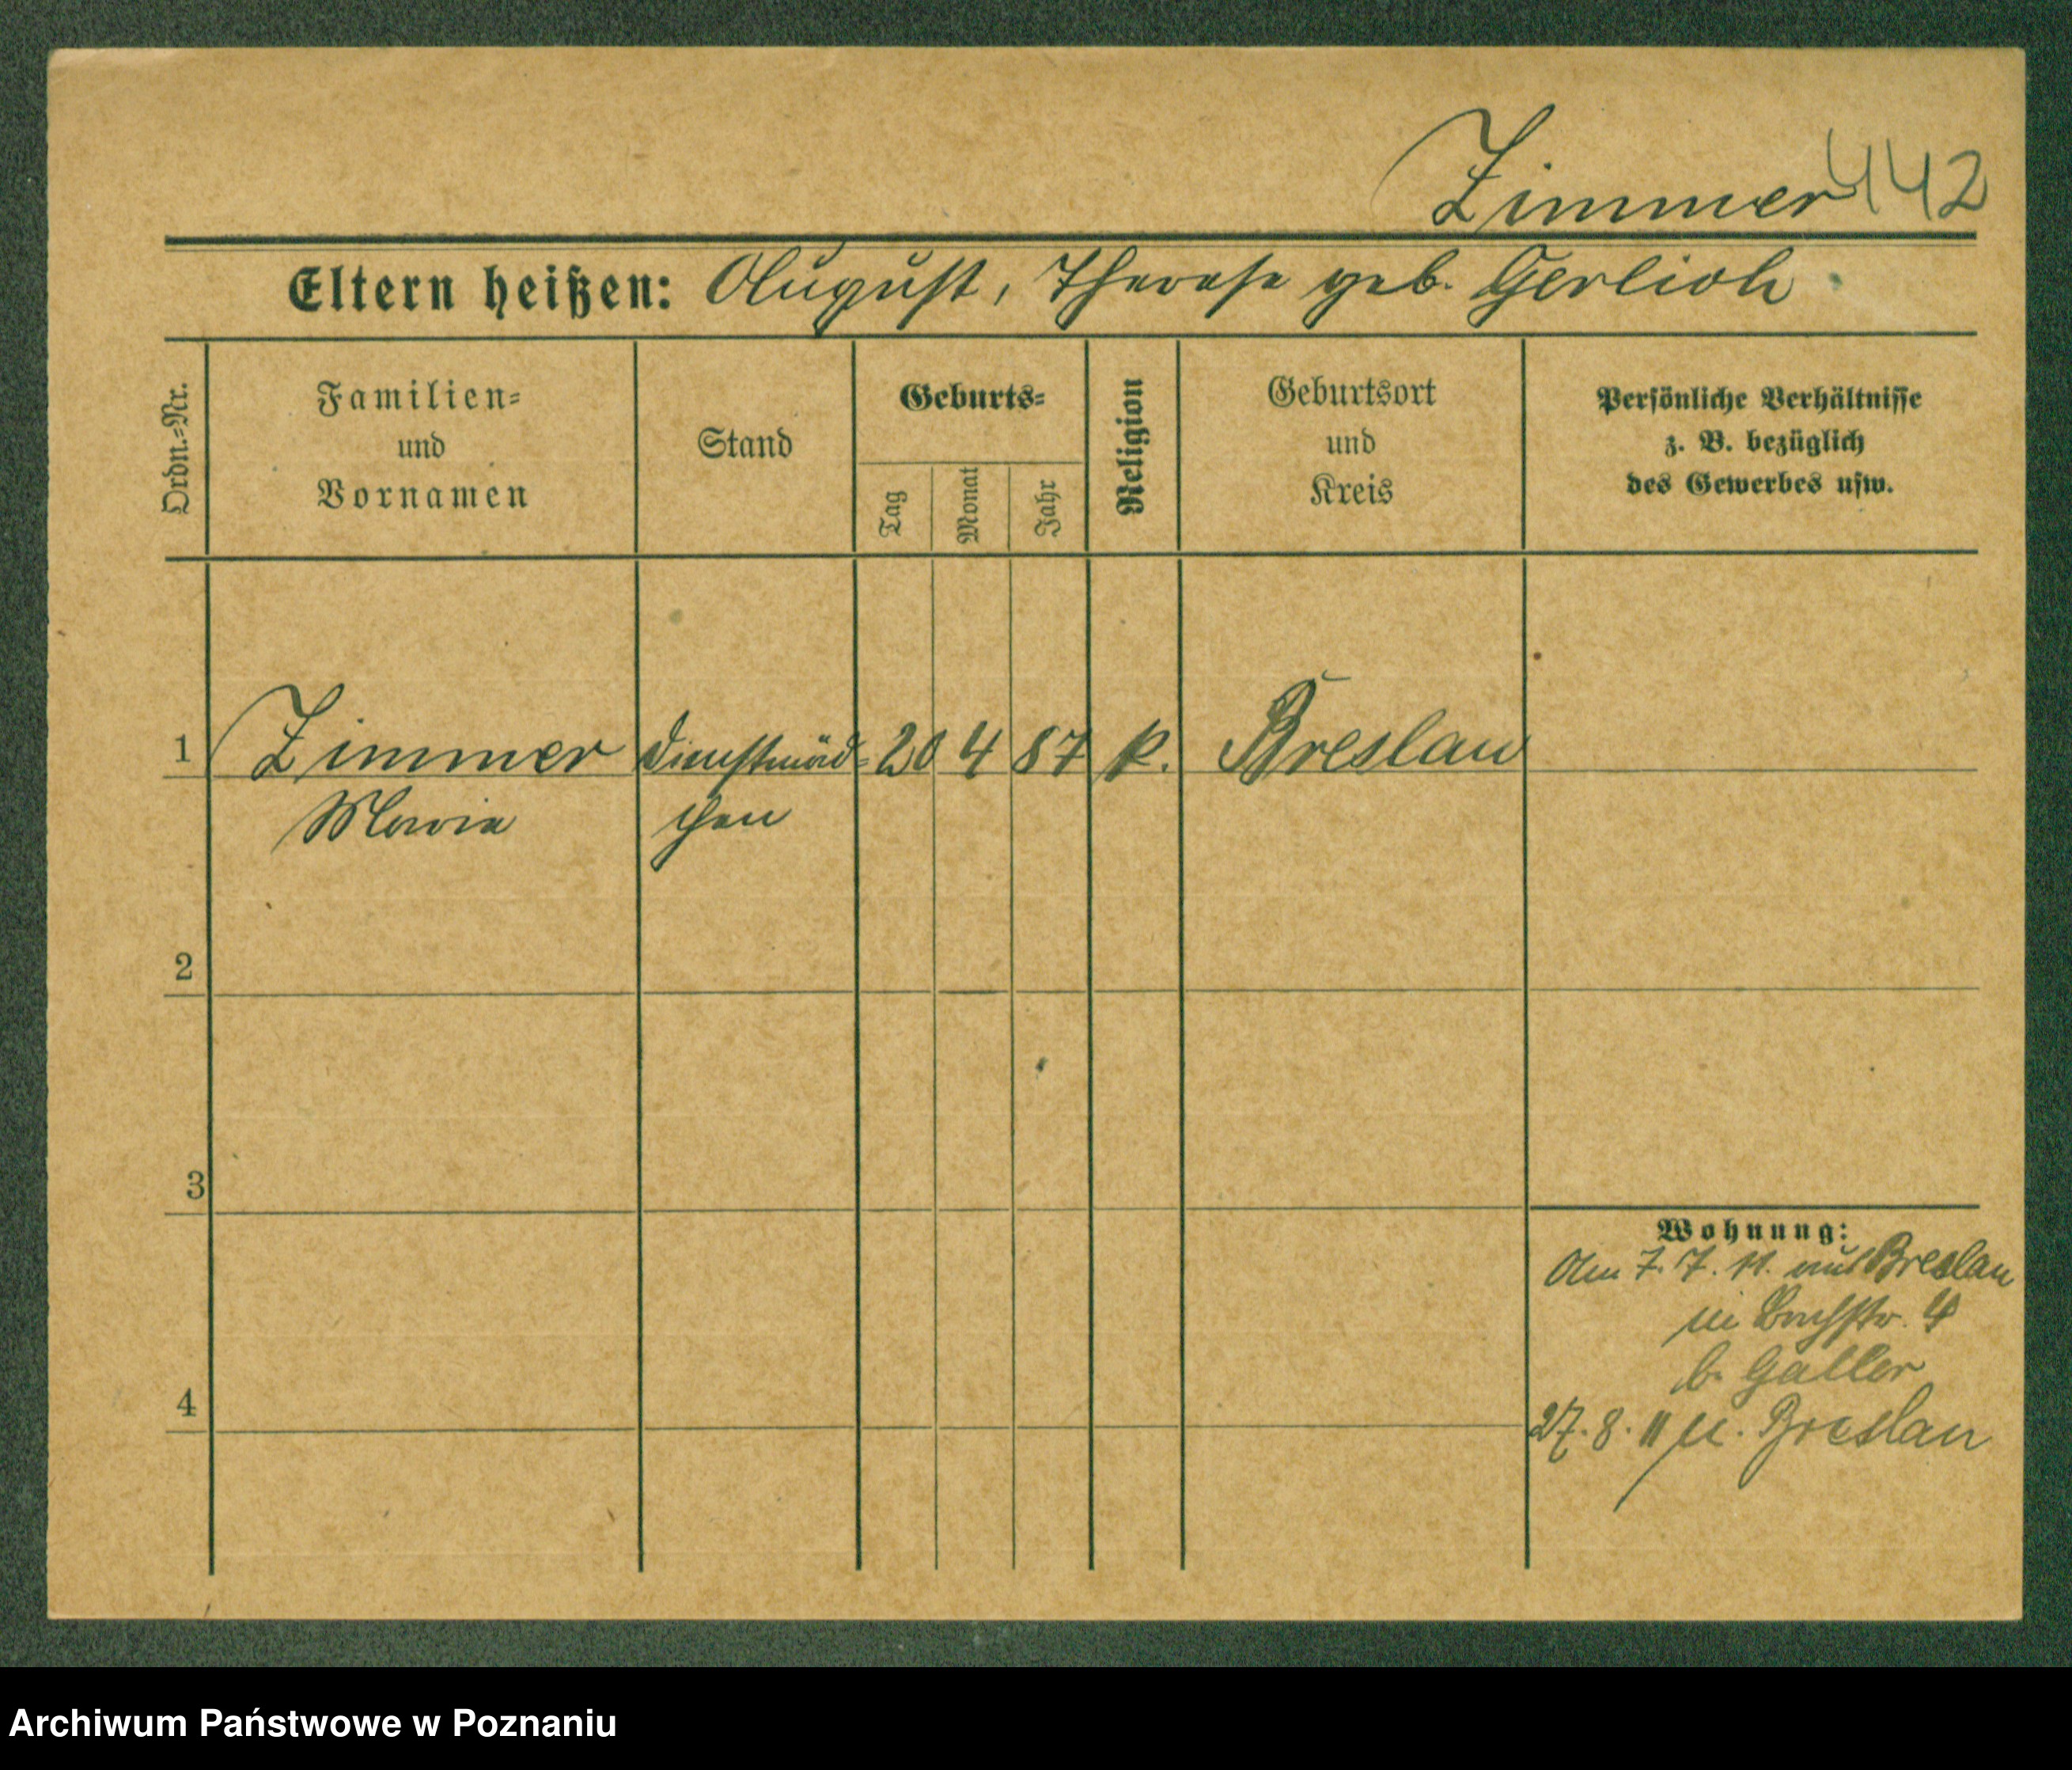 Zimmer 442
Eltern heißen: August, Therese geb. Gerlich
Ordn.-Nr.
Familien-
und
Vornamen
Stand
Geburts-
Tag
Monat
Jahr
Religion
Geburtsort
und
Kreis
Persönliche Verhältnisse
z. B. bezüglich
des Gewerbes usw.
1 Zimmer Dienstmäd- 20 4 87 k. Breslau
Maria chen
2
3
Wohnung:
Am 7. 7. 11. aus Breslau
in Bachstr. 4
b. Galler
4
27. 8. 11 n. Breslau
Archiwum Państwowe w Poznaniu